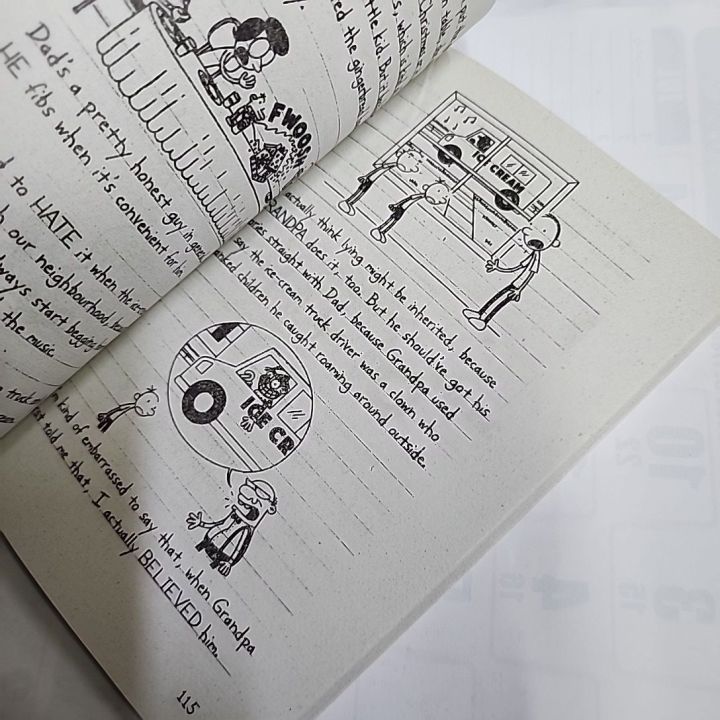 FWOOSH
Dad's a pretty honest guy in
HE fibs when it's convenient for
to HATE it when the
our neighbourhood,
start begging
the music.
truck
the
kid. But
which
Christmas
ICE CREAM
actually think lying might be inherited, because
GRANDPA does it, too. But he should've got his
straight with Dad, because Grandpa used
say the ice-cream truck driver was a clown who
children he caught roaming around outside.
ICE CR
kind of embarrassed to say that, when Grandpa
told me that, I actually BELIEVED him.
115